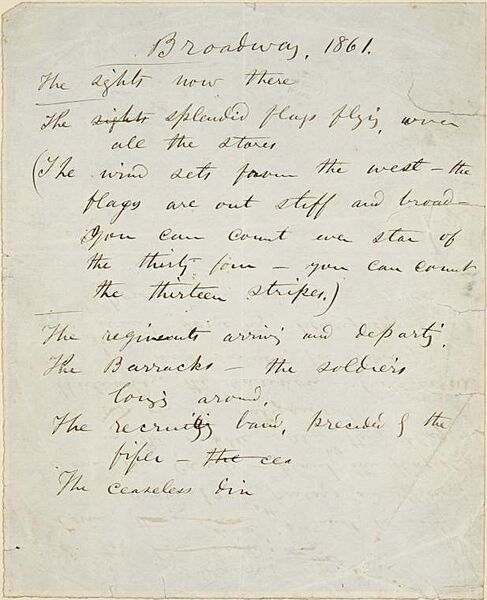 Broadway, 1861.
The sights now there
The sights splendid flags flying over
all the stores
(The wind sets from the west – the
flags are out stiff and broad –
you can count ever star of
the thirty four – you can count
the thirteen stripes.)
The regiments arriving and departing.
The Barracks – the soldiers
lounging around.
The recruiting band, preceded by the
fifer – the cea
The ceaseless din